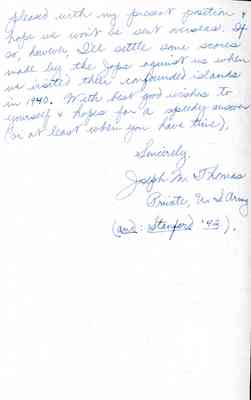 pleased with my present position &
hope we won't be sent overseas. If
so, however, I'll settle some scores
made by the Japs against us when
we visited their confounded islands
in 1940. With best good wishes to
yourself & hopes for a speedy answer
(or at least when you have time),
Sincerely,
Joseph M. Thomas
Private, U.S. Army
(and: Stanford '43).